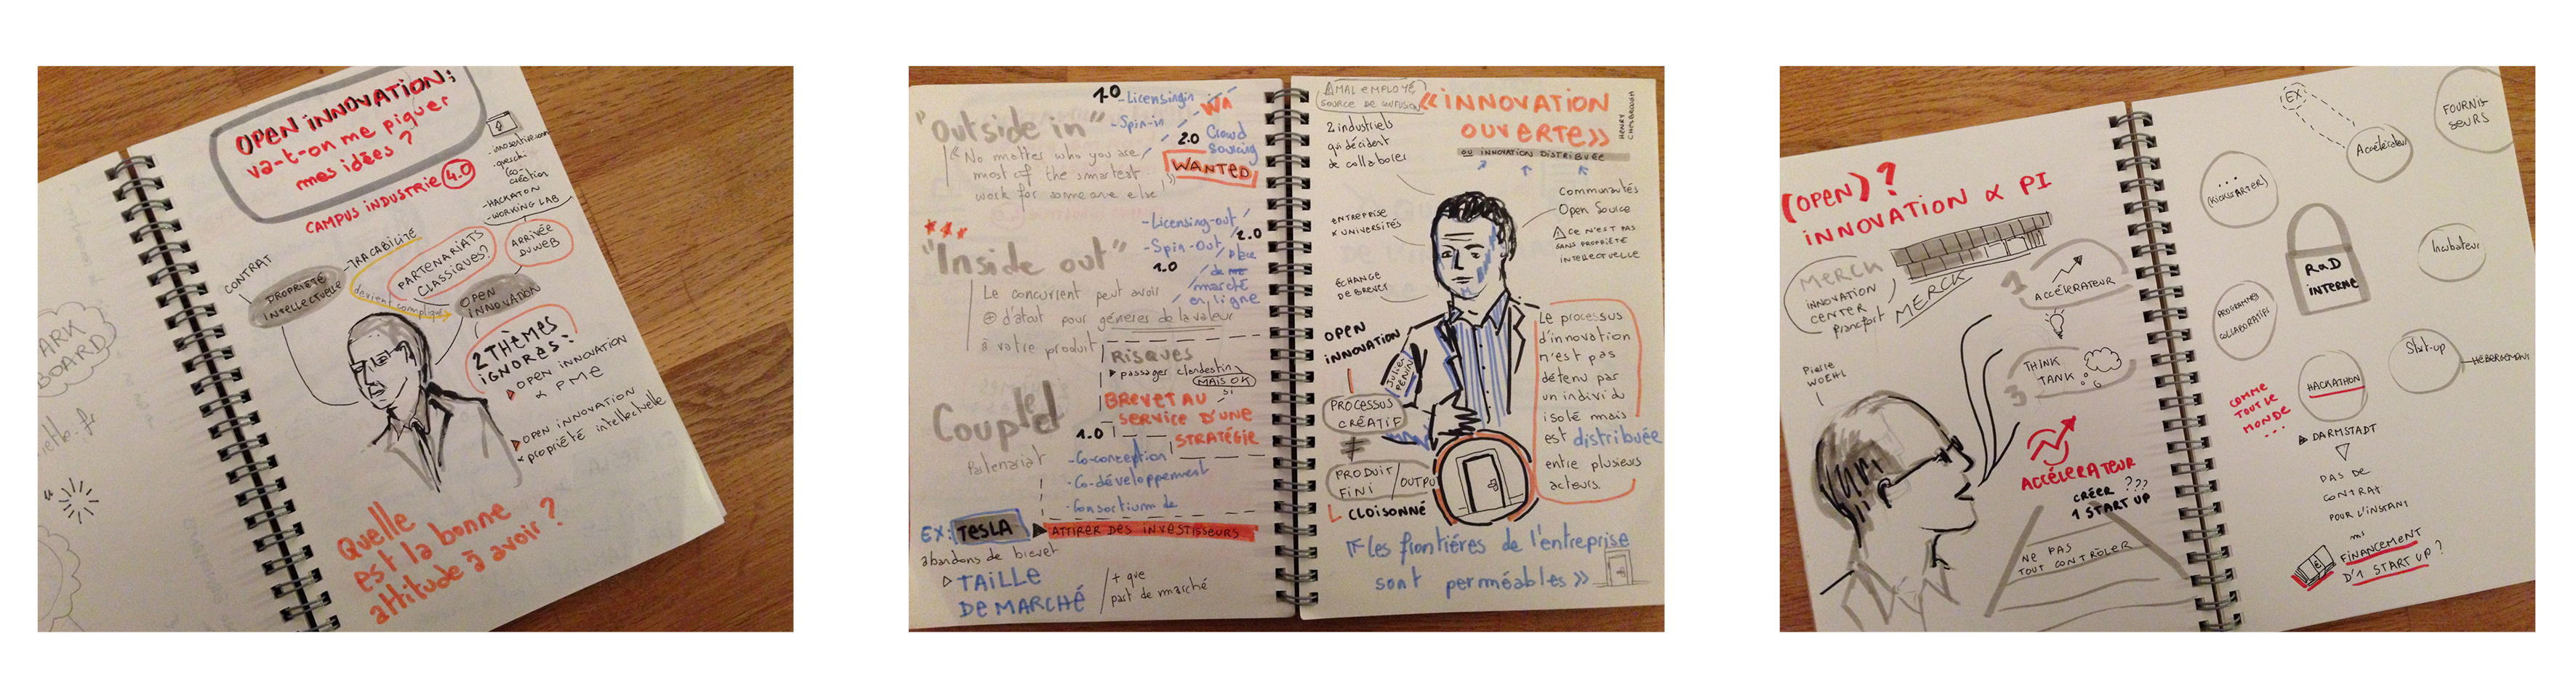 OPEN INNOVATION:
va-t-on me piquer
mes idées ?
CAMPUS INDUSTRIE 4.0
-HACKATON
-WORKING LAB
ARRIVÉE
DU WEB
PARTENARIATS
CLASSIQUES?
-TRACABILITÉ
CONTRAT
PROPRIÉTÉ
INTELLECTUELLE
devient compliqué
OPEN
INNOVATION
2 THÈMES
IGNORÉS:
OPEN INNOVATION
& PME
OPEN INNOVATION
& propriété intellectuelle
Quelle
est la bonne
attitude à avoir ?
ARK
BOARD
"Outside in"
"No matter who you are
most of the smartest
work for someone else"
1.0
-Licensing in
-Spin-in
2.0
Crowd
sourcing
WANTED
"Inside out"
Le concurrent peut avoir
+ d'atout pour générer de la valeur
à votre produit
-Licensing-out
-Spin-Out
2.0
1.0
Place
de
marché
en ligne
Risques
passager clandestin
MAIS OK
si
BREVET AU
SERVICE D'UNE
STRATÉGIE
Coupled
Partenariat
1.0
-Co-conception
-Co-développement
-Consortium de
EX: TESLA
ATTIRER DES INVESTISSEURS
abandons de brevet
TAILLE
DE MARCHÉ
+ que
part de marché
MAL EMPLOYÉ
SOURCE DE CONFUSION
«INNOVATION
OUVERTE»
HENRY
CHESBROUGH
OU INNOVATION DISTRIBUÉE
2 industriels
qui décident
de collaborer
ENTREPRISE
x UNIVERSITÉS
ÉCHANGE
DE BREVET
Communautés
Open Source
CE N'EST PAS
SANS PROPRIÉTÉ
INTELLECTUELLE
OPEN
INNOVATION
JULIEN
PÉNIN
PROCESSUS
CRÉATIF
≠
PRODUIT
FINI
/OUTPU
CLOISONNÉ
Le processus
d'innovation
n'est pas
détenu par
un individu
isolé mais
est distribuée
entre plusieurs
acteurs.
«les frontières de l'entreprise
sont perméables»
(OPEN) ?
INNOVATION & PI
MERCK
INNOVATION
CENTER
Francfort
MERCK
1
ACCÉLÉRATEUR
THINK
TANK
3
Pierre
WOEHL
ACCÉLERATEUR
CRÉER ???
1 START UP
NE PAS
TOUT CONTRÔLER
EX
Accélérateur
FOURNIS-
SEURS
...
(KICKSTARTER)
R&D
INTERNE
Incubateur
PROGRAMMES
COLLABORATIFS
Start-up
HÉBERGEMENT
HACKATHON
COMME
TOUT LE
MONDE
...
DARMSTADT
PAS DE
CONTRAT
POUR L'INSTANT
FINANCEMENT
D'1 START UP ?